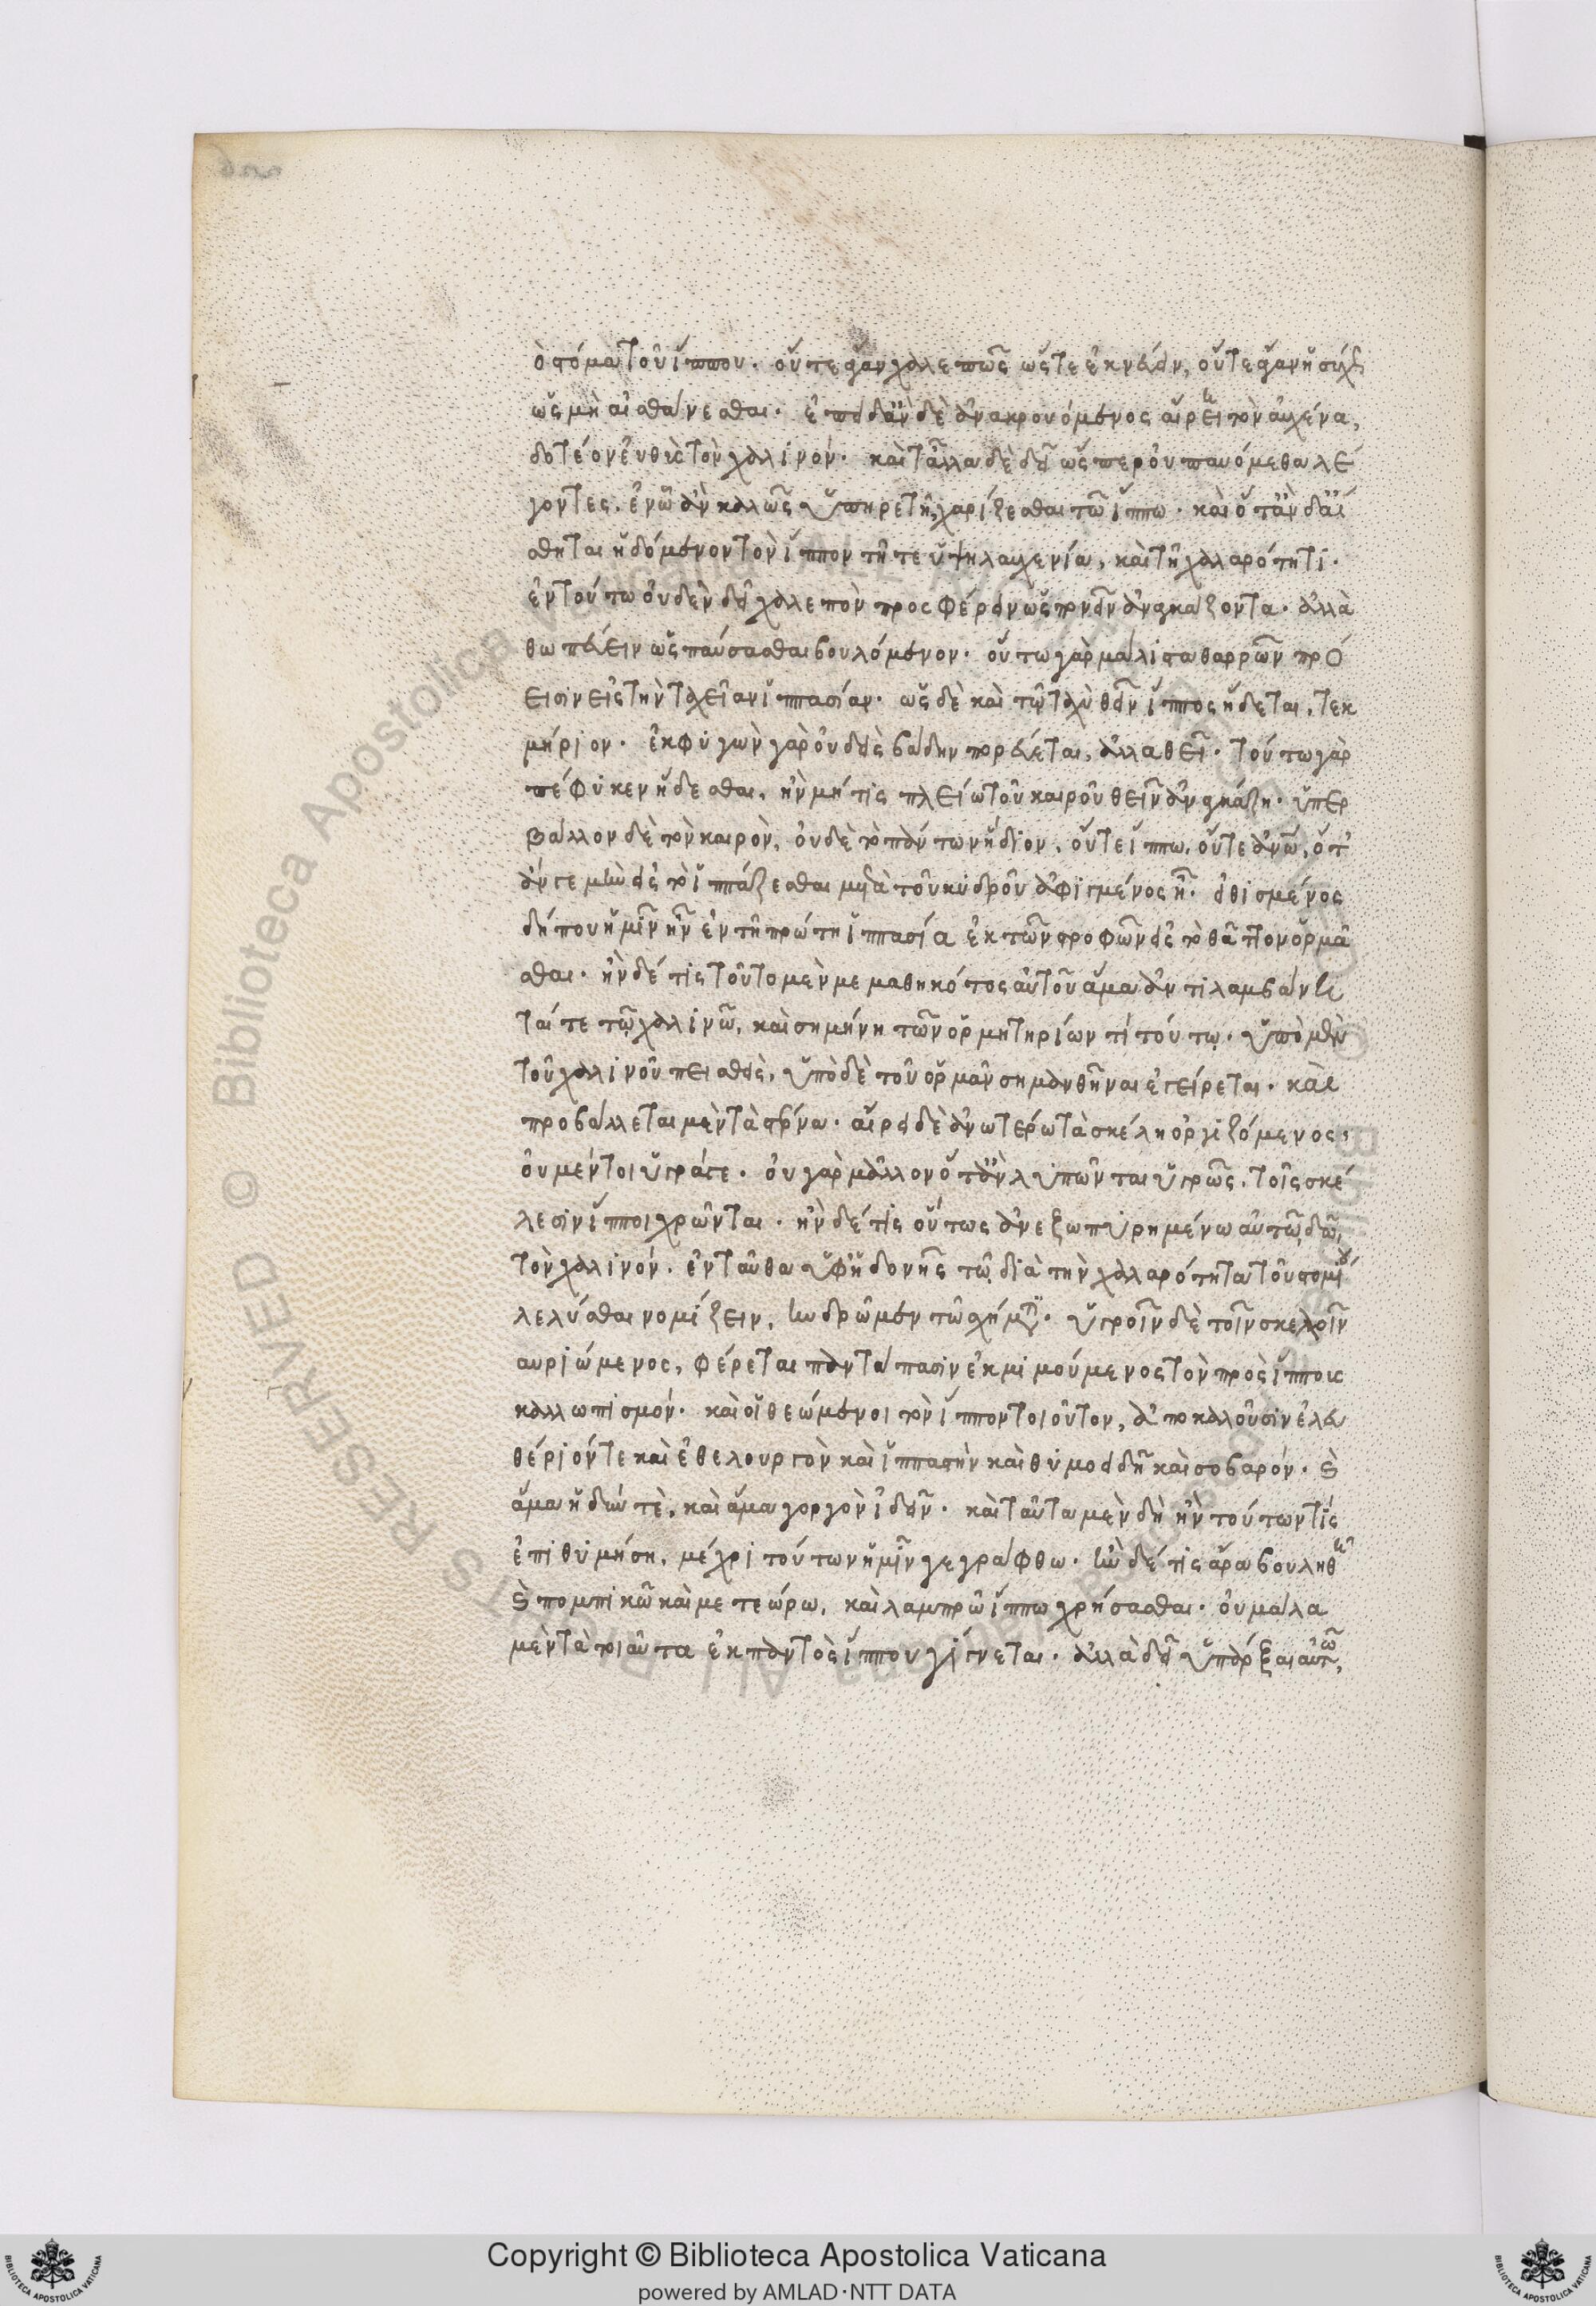 ὸ στόμα τοῦ ἵππου. οὔτε ἄγαν χαλεπῶς ὥστε ἐκνεύειν, οὔτε ἄγαν ἡσύχως
ὡς μὴ αἰσθάνεσθαι. ἐπειδὰν δὲ ἀνακρουόμενος αἴρει τὸν αὐχένα,
δοτέον εὐθὺς τὸν χαλινόν. καὶ τἆλλα δὲ δεῖ ὥσπερ οὐ παυόμεθα λέ
γοντες, ἐν ᾧ ἂν καλῶς ὑπηρετῇ, χαρίζεσθαι τῶ ἵππω. καὶ ὅταν δ' αἴ
σθηται ἡδόμενον τὸν ἵππον τῇ τε ὑψηλαυχενία, καὶ τῇ χαλαρότητι.
ἐν τούτω οὐδὲν δεῖ χαλεπὸν προσφέρειν ὡς πονεῖν ἀναγκάζοντα. ἀλλὰ
θωπεύειν ὡς παύσασθαι βουλόμενον. οὕτω γὰρ μάλιστα θαρρῶν πρό
εισιν εἰς τὴν ταχεῖαν ἱππασίαν. ὡς δὲ καὶ τῷ ταχὺ θεῖν ἵππος ἥδεται, τεκ
μήριον. ἐκφυγὼν γὰρ οὐδεὶς βάδην πορεύεται, ἀλλὰ θεῖ. τούτω γὰρ
πέφυκεν ἥδεσθαι, ἢν μή τις πλείω τοῦ καιροῦ θεῖν ἀναγκάζη. ὑπερ
βάλλον δὲ τὸν καιρὸν, οὐδὲ τὸ πάντων ἥδιον, οὔτε ἵππω, οὔτε ἀνῶ, ὅτ
ἄν γε μὴν εἰς τὸ ἱππάζεσθαι μετὰ τοῦ κυδροῦ ἀφιγμένος ῇ. εἰθισμένος
δήπου ἡμῖν ἦν ἐν τῇ πρώτη ἱππασία ἐκ τῶν στροφῶν εἰς τὸ θᾶττον ὁρμᾶ
σθαι. ἢν δέ τις τοῦτο μὲν μεμαθηκότος αὐτοῦ ἅμα ἀντιλαμβάνη
ταί τε τῷ χαλινῶ, καὶ σημήνη τῶν ὁρμητηρίων τί τούτῳ. ὑπὸ μὲν
τοῦ χαλινοῦ πιεσθεὶς, ὑπὸ δὲ τοῦ ὁρμᾶν σημανθῆναι ἐγείρεται. καὶ
προβάλλεται μὲν τὰ στέρνα. αἴρει δὲ ἀνωτέρω τὰ σκέλη ὀργιζόμενος,
οὐ μέντοι ὑγρά γε. οὐ γὰρ μᾶλλον ὅταν λυπῶνται ὑγρῶς, τοῖς σκέ
λεσιν ἵπποι χρῶνται. ἢν δέ τις οὕτως ἀνεζωπυρημένω αὐτῶ, δῶ,
τὸν χαλινόν. ἐνταῦθα ὑφ' ἡδονῆς τῷ διὰ τὴν χαλαρότητα τοῦ στομίου
λελύσθαι νομίζειν, κυδρῷ μὲν τῷ σχήματι. ὑγροῖν δὲ τοῖν σκελοῖν
αυριώμενος, φέρεται παντάπασιν ἐκμιμούμενος τὸν πρὸς ἵππους
καλλωπισμόν. καὶ οἱ θεώμενοι τὸν ἵππον τοιοῦτον, ἀποκαλοῦσιν ἐλευ
θέριόν τε καὶ ἐθελουργὸν καὶ ἱππαστὴν καὶ θυμοειδῆ καὶ σοβαρόν. καὶ
ἅμα ἡδύν τὲ, καὶ ἅμα γοργὸν ἰδεῖν. καὶ ταῦτα μὲν δὴ ἢν τούτων τίς
ἐπιθυμήση, μέχρι τούτων ἡμῖν γεγράφθω. ἢν δέ τις ἄρα βουληθῆ
καὶ πομπικῶ καὶ μετεώρω, καὶ λαμπρῶ ἵππω χρήσασθαι. οὐ μάλα
μὲν τὰ τοιαῦτα ἐκ παντὸς ἵππου γίγνεται. ἀλλὰ δεῖ ὑπάρξαι αὐτῶ,
Copyright © Biblioteca Apostolica Vaticana
powered by AMLAD·NTT DATA